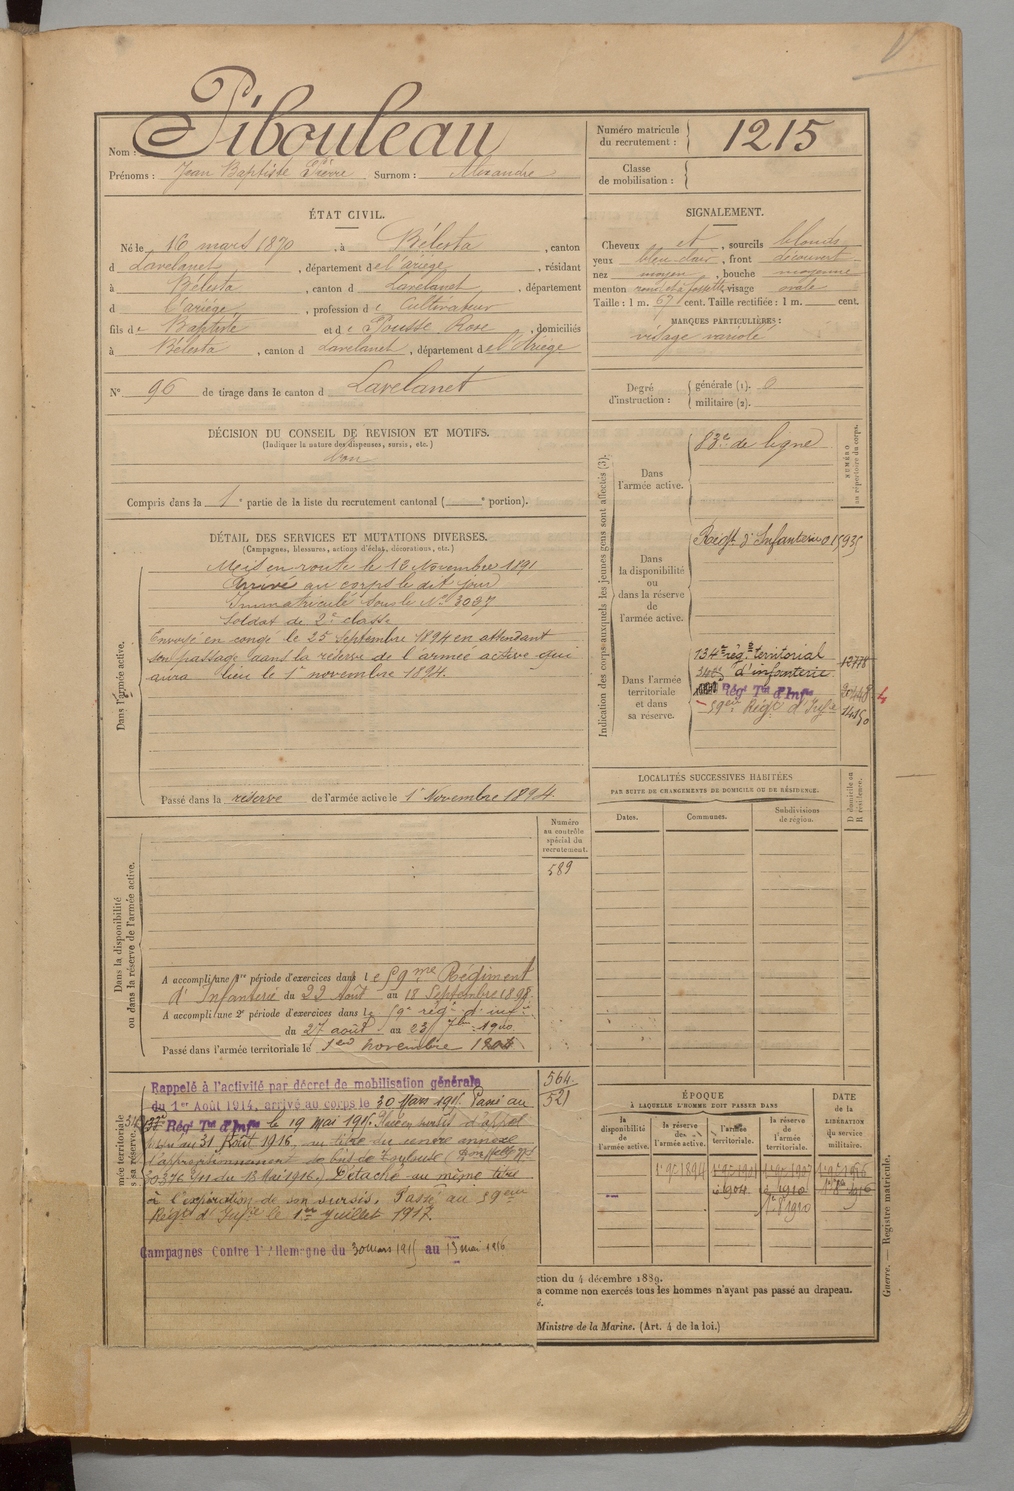 Nom : Pibouleau
Prénoms : Jean Baptiste Pierre Surnom : Alexandre
Numéro matricule du recrutement : 1215
Classe de mobilisation :
ÉTAT CIVIL.
Né le 16 mars 1870, à Bélesta, canton
d Lavelanet, département de l'ariége, résidant
à Bélesta, canton d Lavelanet, département
d l'ariége, profession de Cultivateur
fils de Baptiste et de Pousse Rose, domiciliés
à Bélesta, canton d Lavelanet, département de l'Ariége
N° 96 de tirage dans le canton d Lavelanet
SIGNALEMENT.
Cheveux et, sourcils blonds
yeux bleu clair, front découvert
nez moyen, bouche moyenne
menton rond et à fossette, visage ovale
Taille : 1 m. 67 cent. Taille rectifiée : 1 m. cent.
MARQUES PARTICULIÈRES :
visage variolé
Degré d'instruction : générale (1). 0
militaire (2).
DÉCISION DU CONSEIL DE REVISION ET MOTIFS.
(Indiquer la nature des dispenses, sursis, etc.)
bon
Compris dans la 1e partie de la liste du recrutement cantonal ( e portion).
DÉTAIL DES SERVICES ET MUTATIONS DIVERSES.
(Campagnes, blessures, actions d'éclat, décorations, etc.)
Dans l'armée active.
Mis en route le 16 Novembre 1891
Arrivé au corps le dit jour
Immatriculé sous le N° 3097
Soldat de 2e classe
Envoyé en congé le 25 Septembre 1894 en attendant
son passage dans la réserve de l'armée active qui
aura lieu le 1er novembre 1894.
Passé dans la réserve de l'armée active le 1er Novembre 1894.
Indication des corps auxquels les jeunes gens sont affectés (3).
NUMÉRO au répertoire du corps.
Dans l'armée active.
83e de ligne
Dans la disponibilité ou dans la réserve de l'armée active.
Régt d'Infanterie 01593
Dans l'armée territoriale et dans sa réserve.
134e rég.t territorial
d'infanterie 12778
Régt Tal d'Infie
59eme Régt d'Infie 14150
4
LOCALITÉS SUCCESSIVES HABITÉES
PAR SUITE DE CHANGEMENTS DE DOMICILE OU DE RÉSIDENCE.
Dates. Communes. Subdivisions de région.
D domicile ou R résidence.
Dans la disponibilité ou dans la réserve de l'armée active.
Numéro au contrôle spécial du recrutement.
589
A accompli une 1re période d'exercices dans le 59me Régiment
d'Infanterie du 22 Août au 18 Septembre 1898.
A accompli une 2e période d'exercices dans le 59e rég.t d'inf.ie
du 27 août au 23 7bre 1900
Passé dans l'armée territoriale le 1er novembre 1904
564
521
Rappelé à l'activité par décret de mobilisation générale
du 1er Août 1914, arrivé au corps le 30 Mars 1915. Passé au
Régt Tal d'Infie le 19 mai 1915. Placé en sursis d'appel
31 Août 1916, au titre du
de Toulouse
30376 du 13 Mai 1916. Détaché au même titre
à l'expiration de son sursis. Passé au 59eme
Régt d'Infie le 1er Juillet 1917.
Campagnes Contre l'Allemagne du 30 mars 1915 au 13 mai 1916
ÉPOQUE
À LAQUELLE L'HOMME DOIT PASSER DANS
la disponibilité de l'armée active.
la réserve de l'armée active.
l'armée territoriale.
la réserve de l'armée territoriale.
DATE de la LIBÉRATION du service militaire.
ction du 4 décembre 1889.
a comme non exercés tous les hommes n'ayant pas passé au drapeau.
é.
Ministre de la Marine. (Art. 4 de la loi.)
Guerre. — Registre matricule.